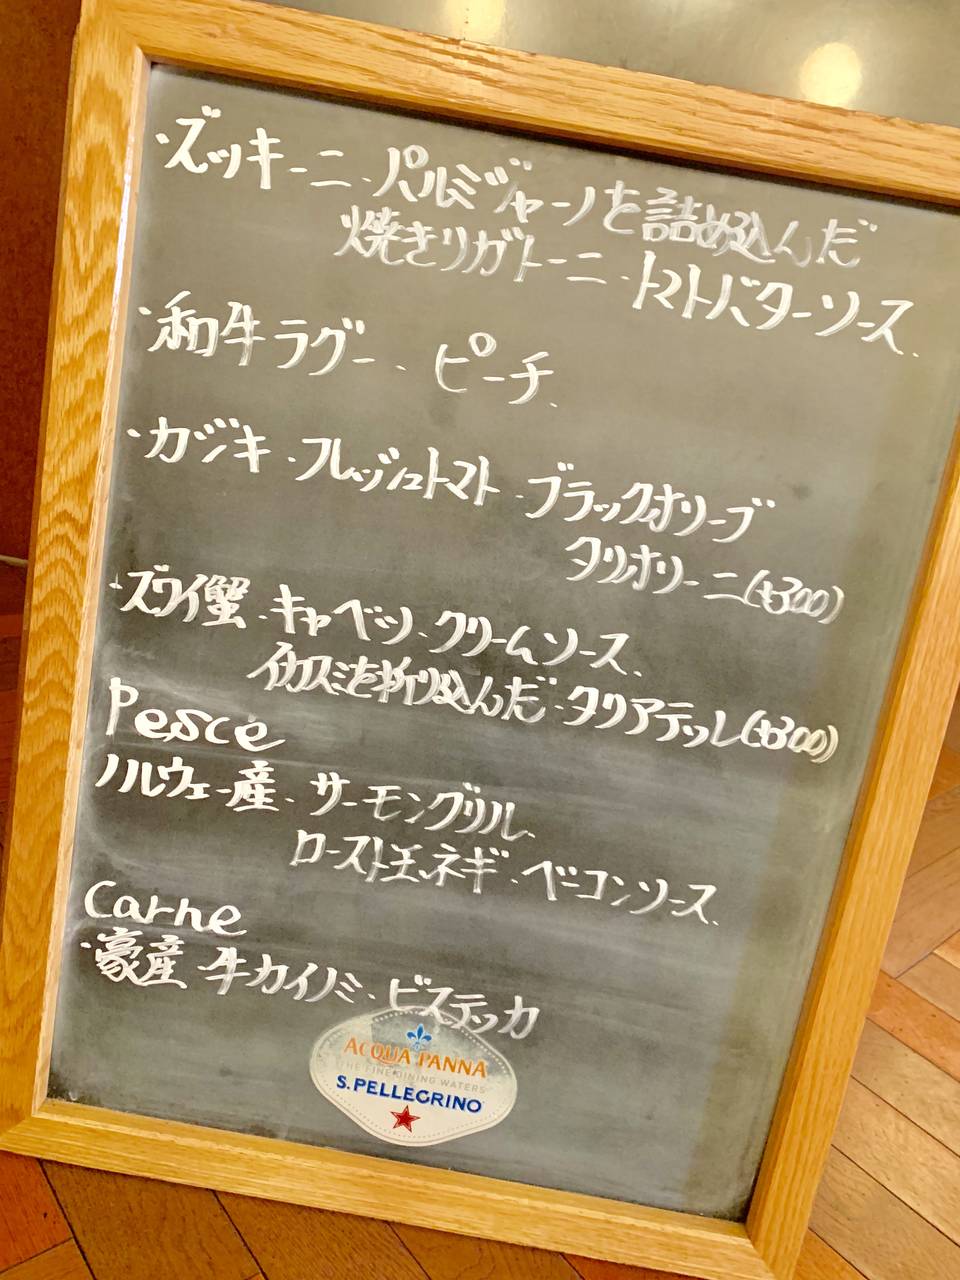 ・ズッキーニ・パルミジャーノを詰め込んだ
焼きリガトーニ・トマトバターソース.
・和牛ラグー、ピーチ.
・カジキ・フレッシュトマト・ブラックオリーブ
タリオリーニ(+¥300)
・ズワイ蟹・キャベツ・クリームソース.
イカスミを折り込んだ・タリアテッレ(+¥300)
Pesce
ノルウェー産・サーモングリル.
ロースト玉ネギ・ベーコンソース.
Carne
・豪産 牛カイノミ・ビステッカ
ACQUA PANNA
THE FINE DINING WATERS
S.PELLEGRINO